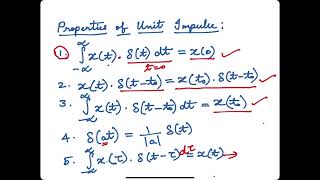 Properties of Unit Impulse:
1. ∫_{-∞}^{∞} x(t). δ(t) dt = x(0)
t=0
2. x(t). δ(t-t₀) = x(t₀). δ(t-t₀)
3. ∫_{-∞}^{∞} x(t). δ(t-t₀) dt = x(t₀)
4. δ(at) = 1/|a| δ(t)
5. ∫_{-∞}^{∞} x(τ). δ(t-τ) dτ = x(t) →